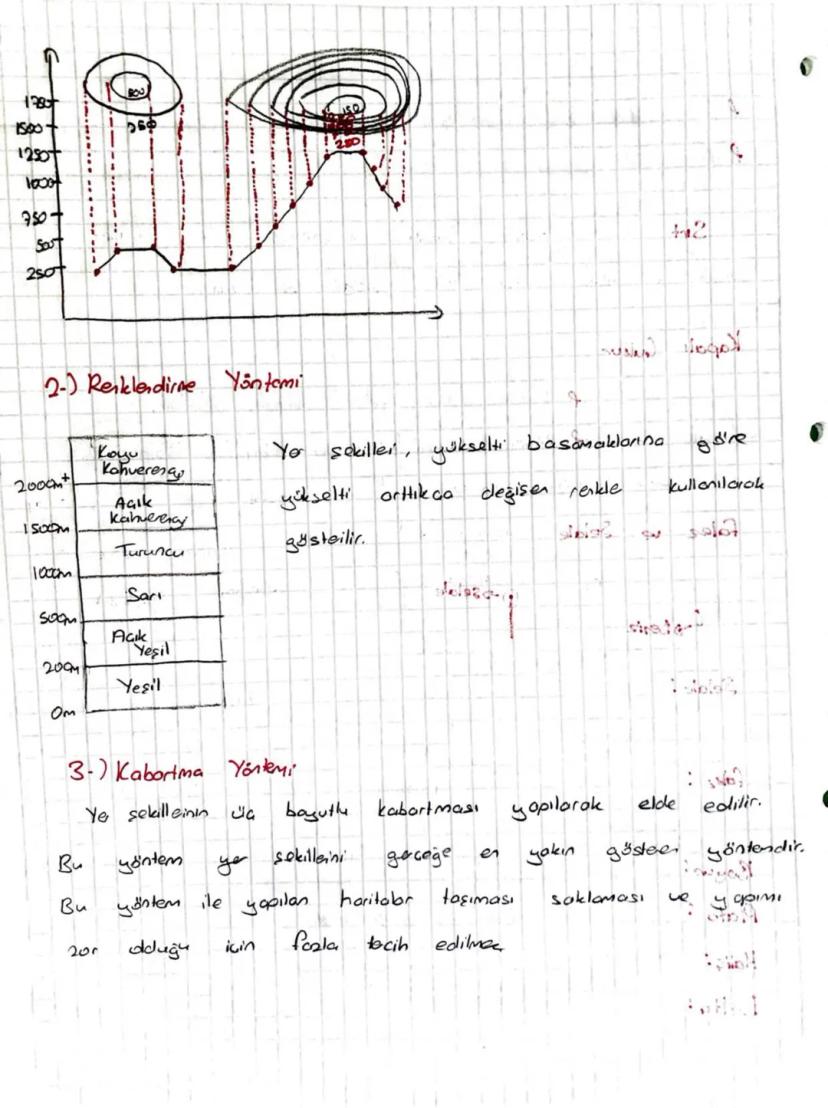 500
250
150
250
1750
1500
1250
1000
750
500
250
2-) Renklendirme Yöntemi
Koyu
Kahverengi
2000m+
Açık
Kahverengi
1500m
Turuncu
1000m
Sarı
500m
Açık
Yeşil
200m
Yeşil
0m
Yer şekilleri, yükselti basamaklarına göre
yükselti arttıkça değişen renkle kullanılarak
gösterilir.
3-) Kabartma Yöntemi
Yer şekillerinin üç boyutlu kabartması yapılarak elde edilir.
Bu yöntem yer şekillerini gerçeğe en yakın gösteren yöntemdir.
Bu yöntem ile yapılan haritalar taşıması saklaması ve yapımı
zor olduğu için fazla tercih edilmez